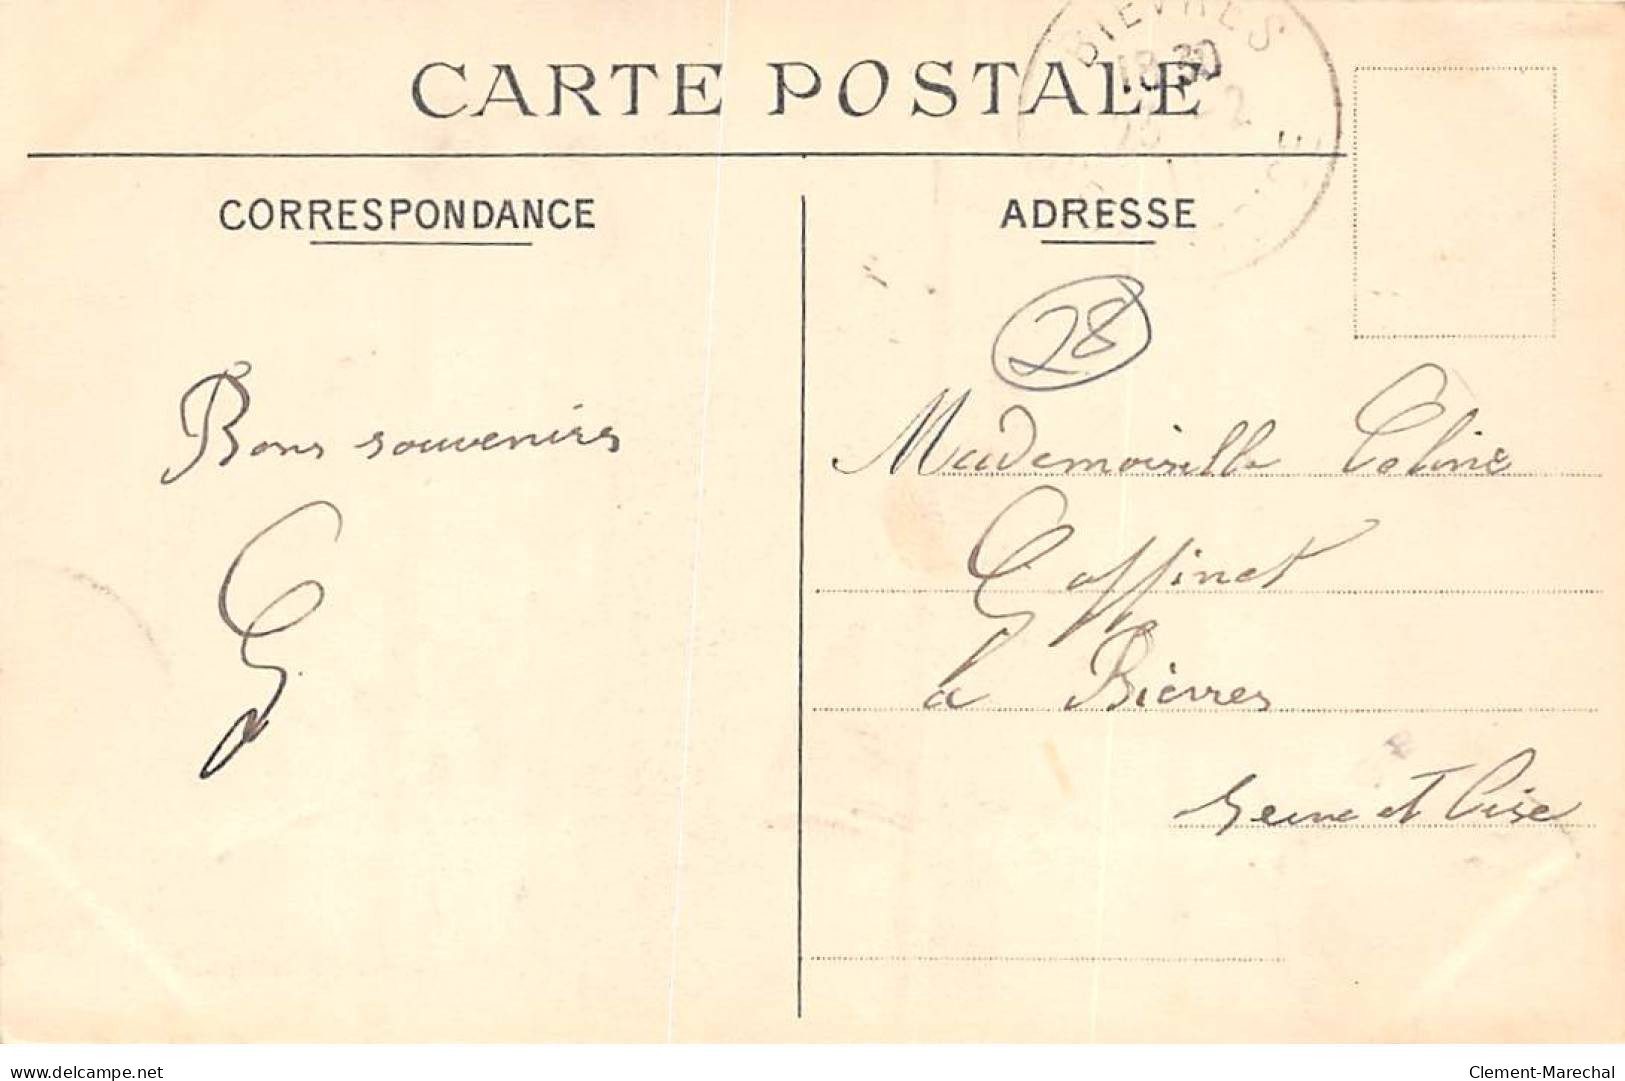 CARTE POSTALE
BIEVRES
18 30
CORRESPONDANCE
ADRESSE
28
Bons souvenirs
Mademoiselle Celine
Coffinet
a Bièvres
Seine et Oise
delcampe.net
Clement-Marechal